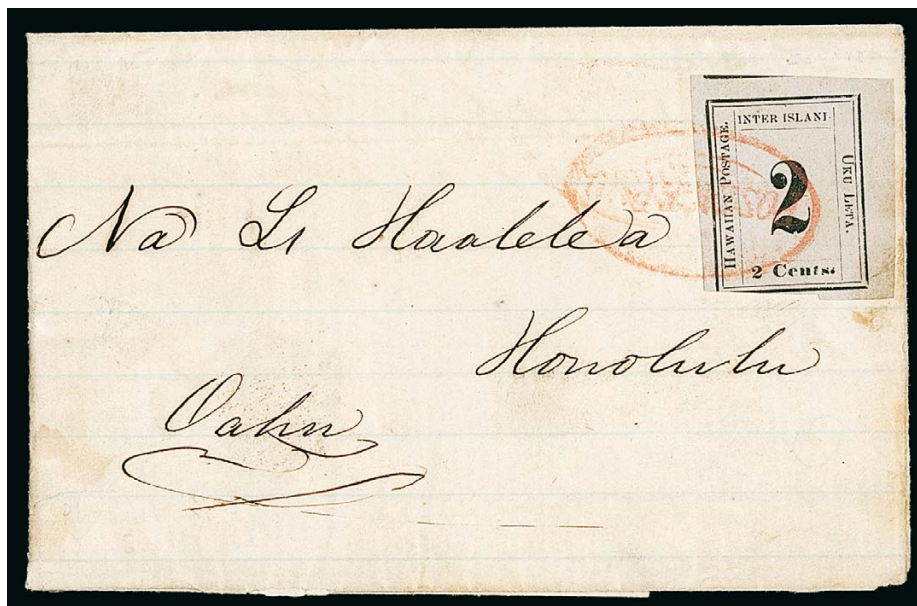 INTER ISLAND
HAWAIIAN POSTAGE.
2
UKU LETA.
2 Cents.
Na L. Haalelea
Honolulu
Oahu